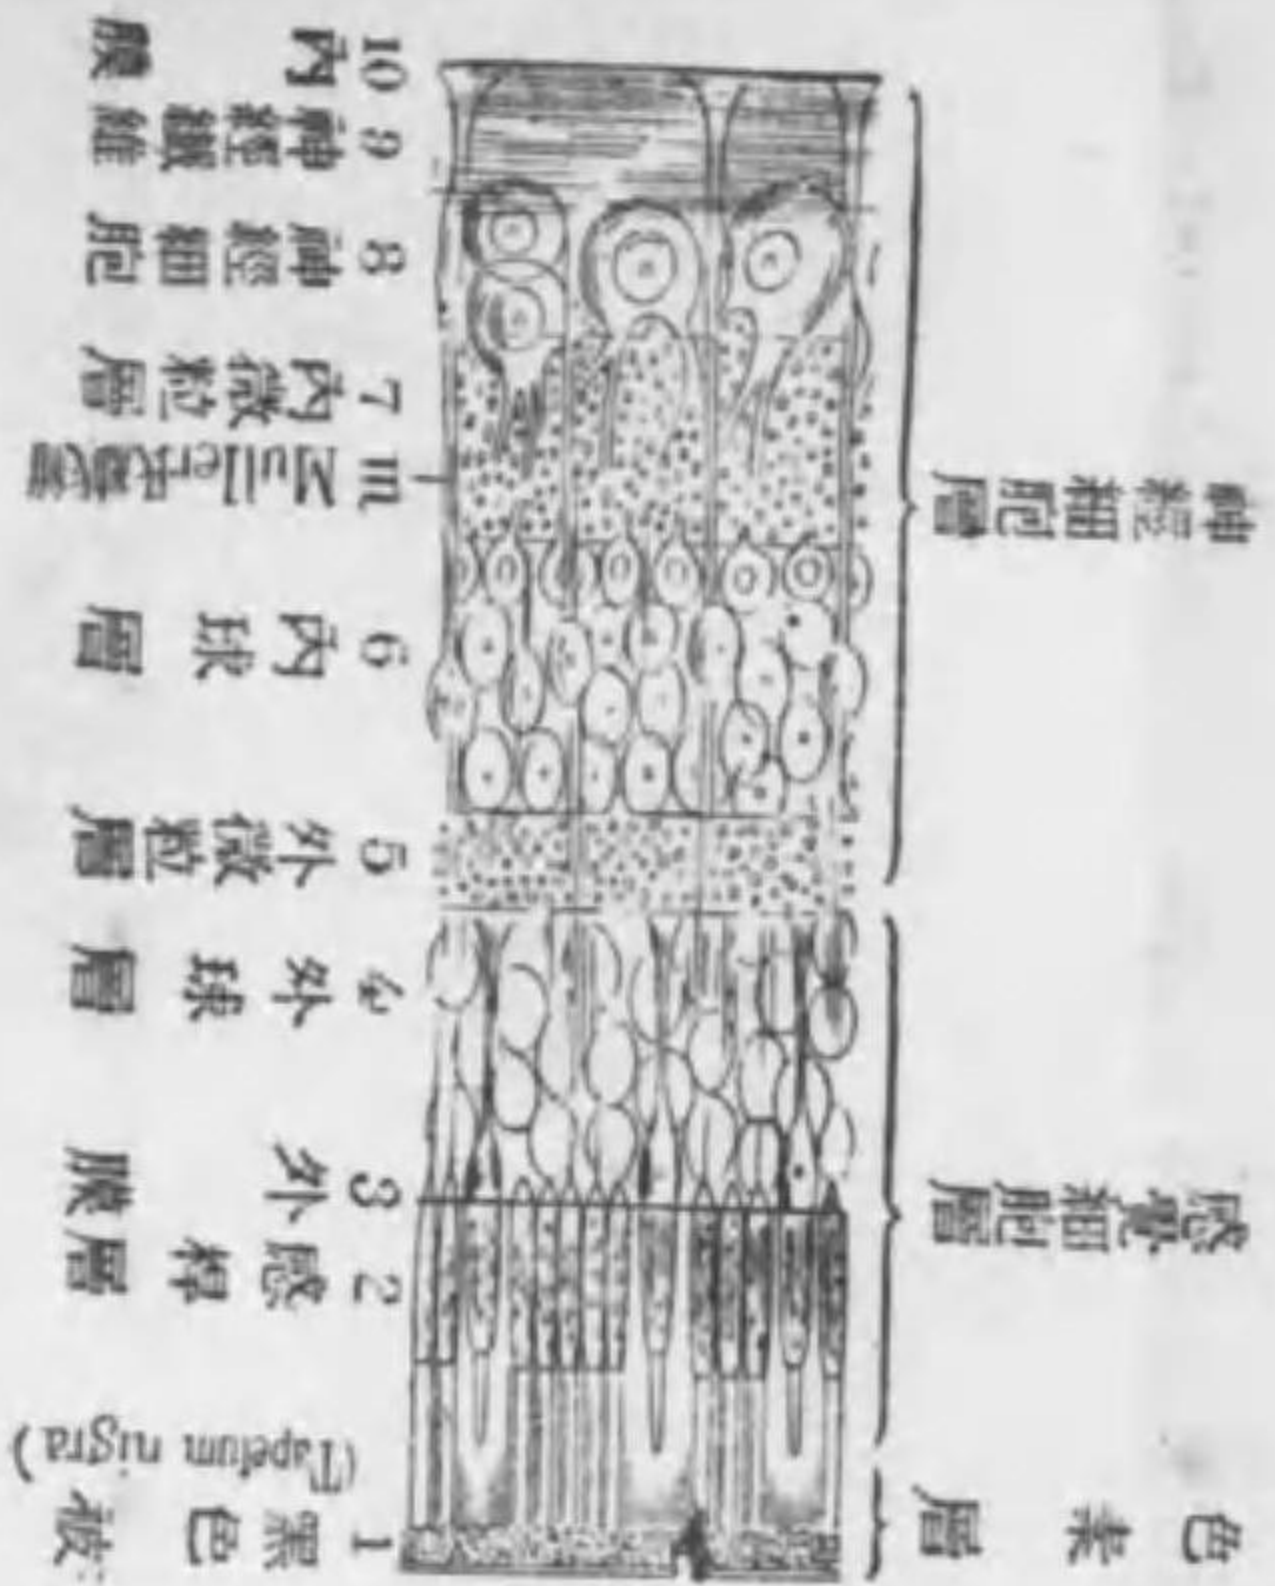 10 內膜
9 神經纖維
8 神經細胞
7 內微粒層
m Muller氏
6 內球層
5 外微粒層
4 外球層
3 外膜
2 感桿層
(Tapetum nigra)
1 黑色被
神經細胞層
感覺細胞層
色素層